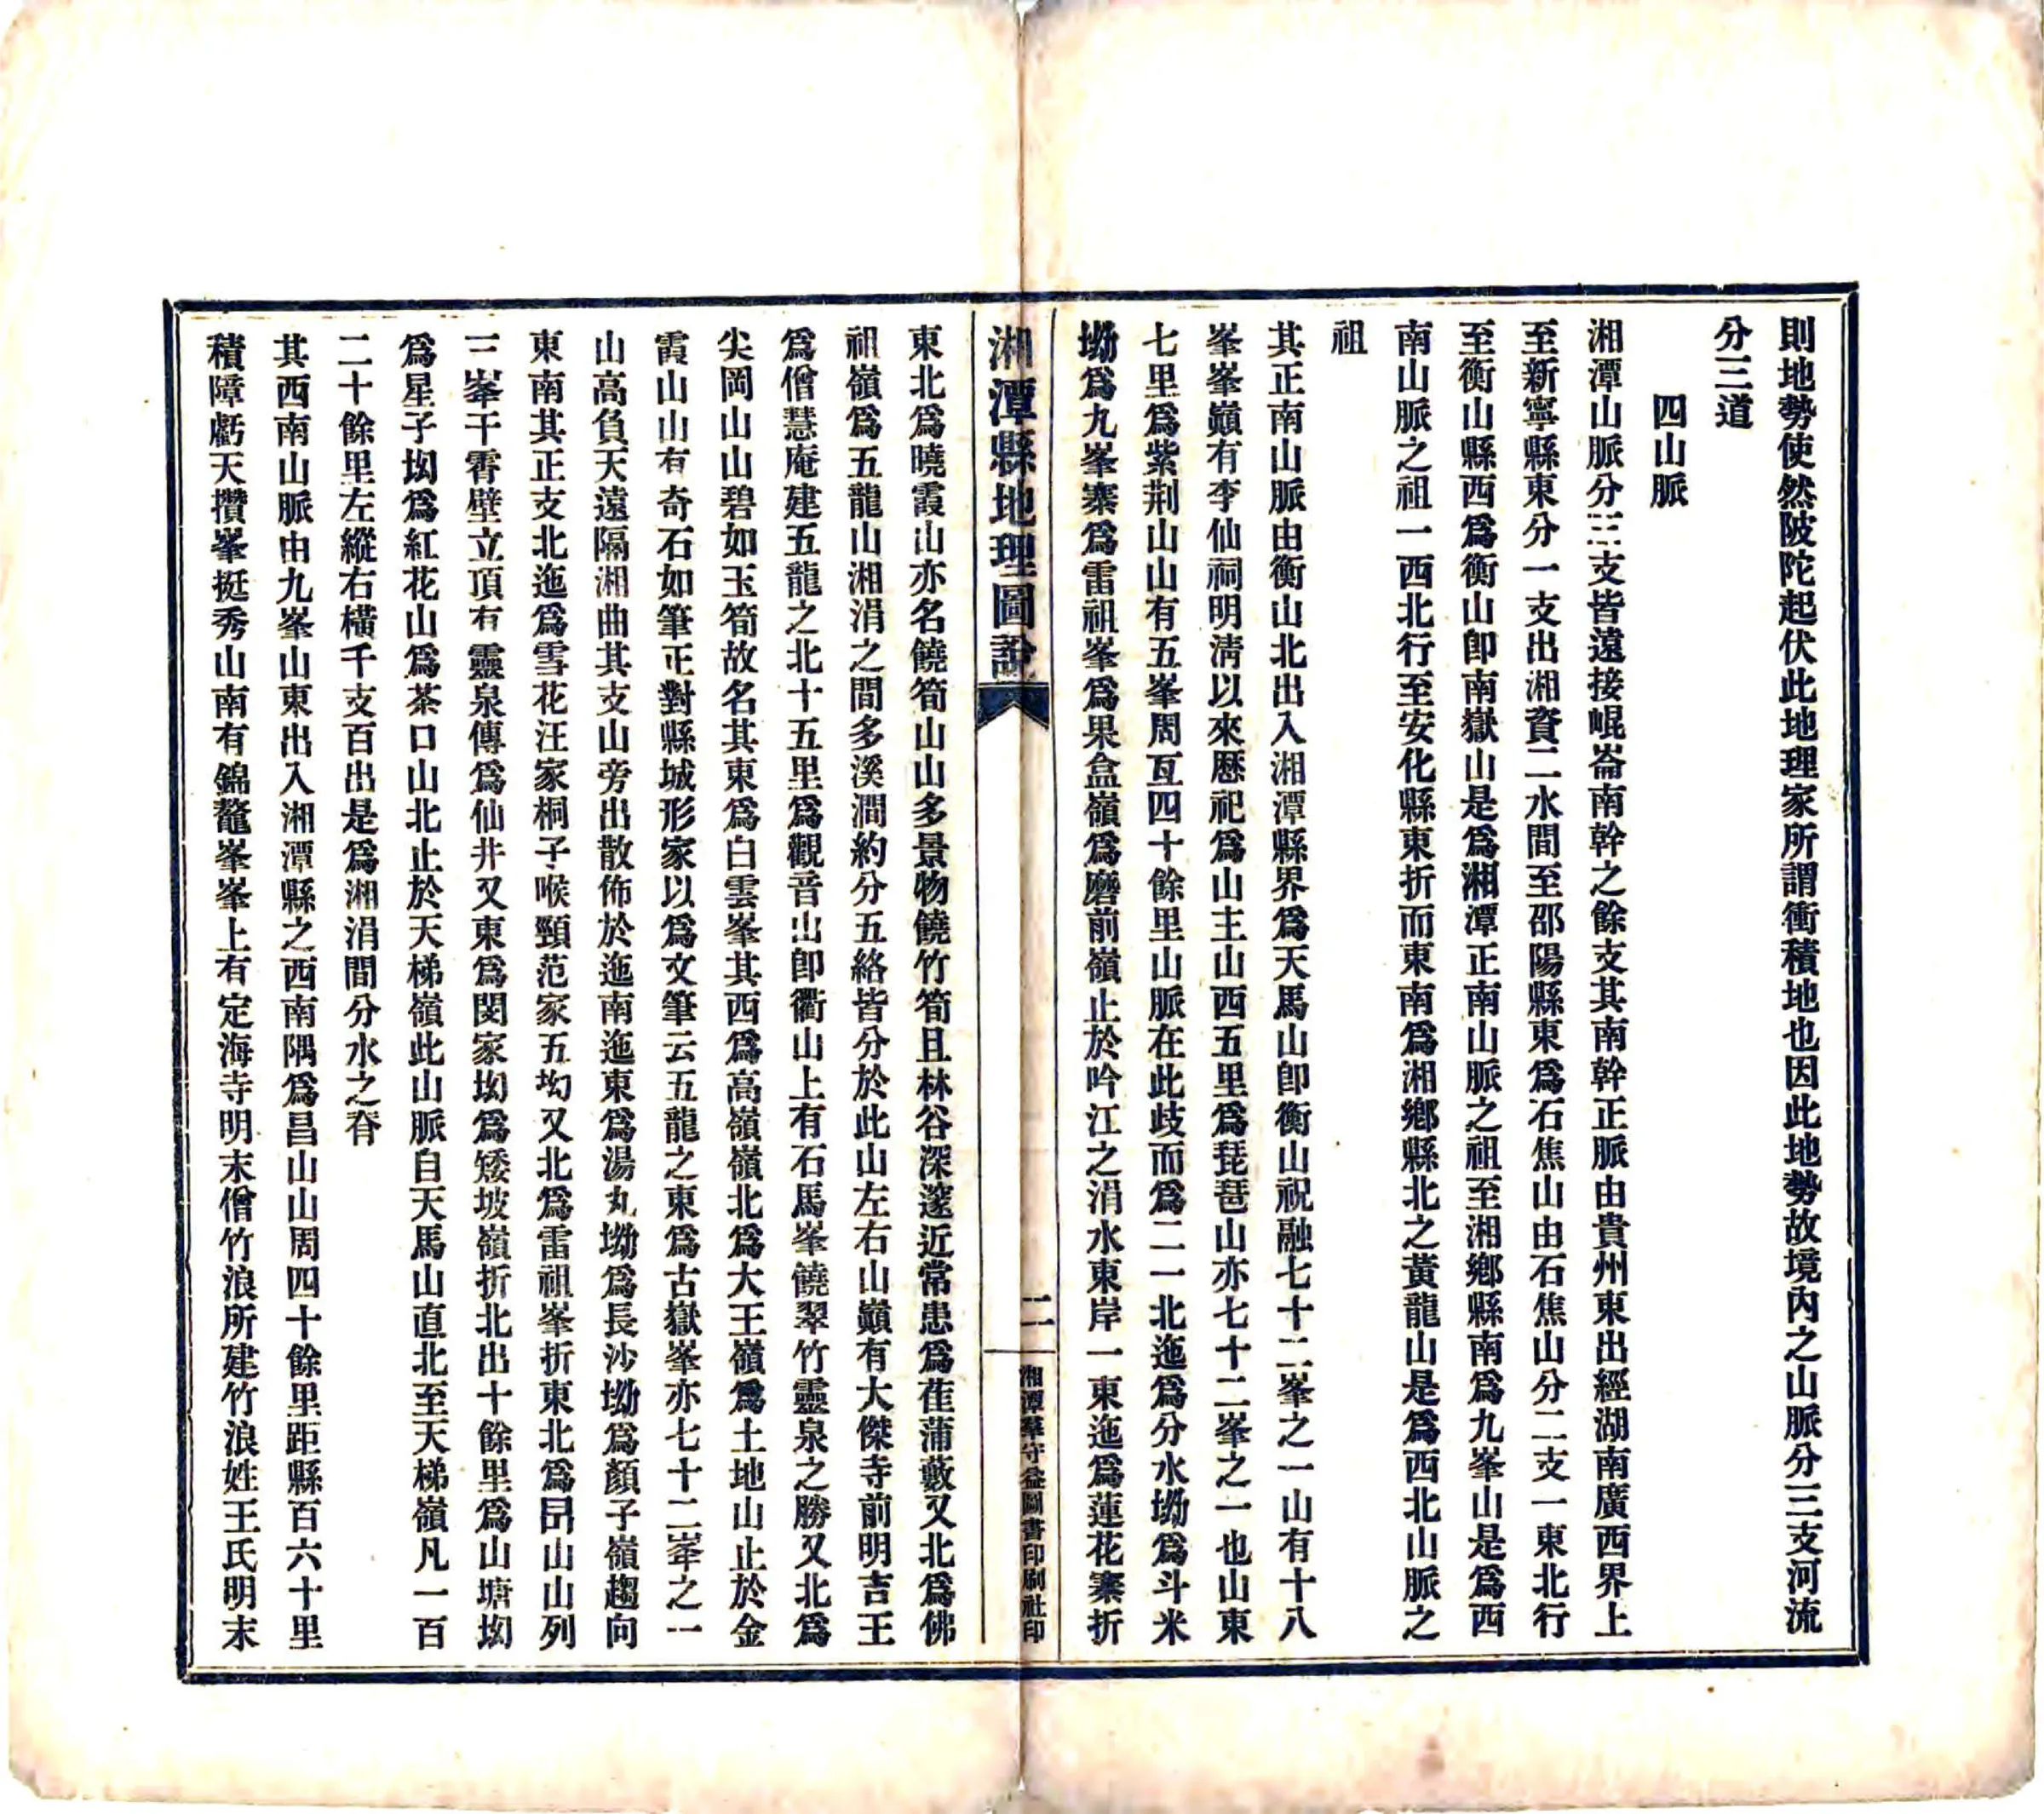 則地勢使然陂陀起伏此地理家所謂衝積地也因此地勢故境內之山脈分三支河流
分三道
四山脈
湘潭山脈分三支皆遠接崐崙南幹之餘支其南幹正脈由貴州東出經湖南廣西界上
至新寧縣東分一支出湘資二水間至邵陽縣東爲石焦山由石焦山分二支一東北行
至衡山縣西爲衡山卽南嶽山是爲湘潭正南山脈之祖至湘鄉縣南爲九峯山是爲西
南山脈之祖一西北行至安化縣東折而東南爲湘鄉縣北之黃龍山是爲西北山脈之
祖
其正南山脈由衡山北出入湘潭縣界爲天馬山卽衡山祝融七十二峯之一山有十八
峯峯巔有李仙祠明淸以來歷祀爲山主山西五里爲琵琶山亦七十二峯之一也山東
七里爲紫荆山山有五峯周亙四十餘里山脈在此歧而爲二一北迤爲分水坳爲斗米
坳爲九峯寨爲雷祖峯爲果盒嶺爲磨前嶺止於吟江之涓水東岸一東迤爲蓮花寨折
湘潭縣地理圖說
二
湘潭羣守益圖書印刷社印
東北爲曉霞山亦名饒筍山山多景物饒竹筍且林谷深邃近常患爲萑蒲藪又北爲佛
祖嶺爲五龍山湘涓之間多溪澗約分五絡皆分於此山左右山巔有大傑寺前明吉王
爲僧慧庵建五龍之北十五里爲觀音山卽衢山上有石馬峯饒翠竹靈泉之勝又北爲
尖岡山山碧如玉筍故名其東爲白雲峯其西爲高嶺嶺北爲大王嶺爲土地山止於金
霞山山有奇石如筆正對縣城形家以爲文筆云五龍之東爲古嶽峯亦七十二峯之一
山高負天遠隔湘曲其支山旁出散佈於迤南迤東爲湯丸坳爲長沙坳爲顏子嶺趨向
東南其正支北迤爲雪花汪家桐子喉頸范家五坳又北爲雷祖峯折東北爲昂山山列
三峯干霄壁立頂有靈泉傳爲仙井又東爲閔家坳爲矮坡嶺折北出十餘里爲山塘坳
爲星子坳爲紅花山爲茶口山北止於天梯嶺此山脈自天馬山直北至天梯嶺凡一百
二十餘里左縱右橫千支百出是爲湘涓間分水之脊
其西南山脈由九峯山東出入湘潭縣之西南隅爲昌山山周四十餘里距縣百六十里
積障虧天攢峯挺秀山南有錦鼇峯峯上有定海寺明末僧竹浪所建竹浪姓王氏明末